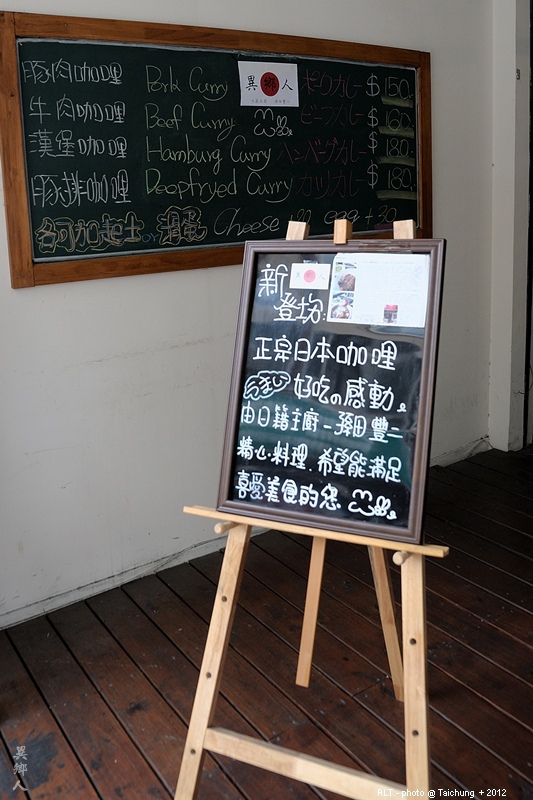 豚肉咖哩 Pork Curry ポークカレー $150
牛肉咖哩 Beef Curry ビーフカレー $160
漢堡咖哩 Hamburg Curry ハンバーグカレー $180
豚排咖哩 Deepfryed Curry カツカレー $180
各可加起士or溫蛋 Cheese egg +30
異鄉人
新
登場:
正宗日本咖哩
うまい 好吃の感動。
由日籍主廚-孫田豐二
精心料理、希望能滿足
喜愛美食的您
異鄉人
RLT - photo @ Taichung + 2012